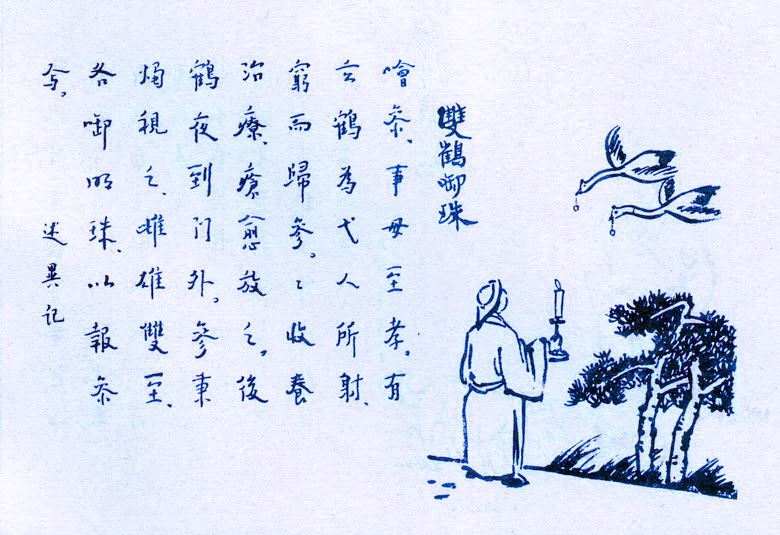 雙鶴啣珠
噲參、事母至孝。有
玄鶴為弋人所射、
窮而歸參。〻收養
治療、療愈放之。後
鶴夜到门外。參秉
燭視之、雌雄雙至、
各啣明珠、以報參
焉。 述異记